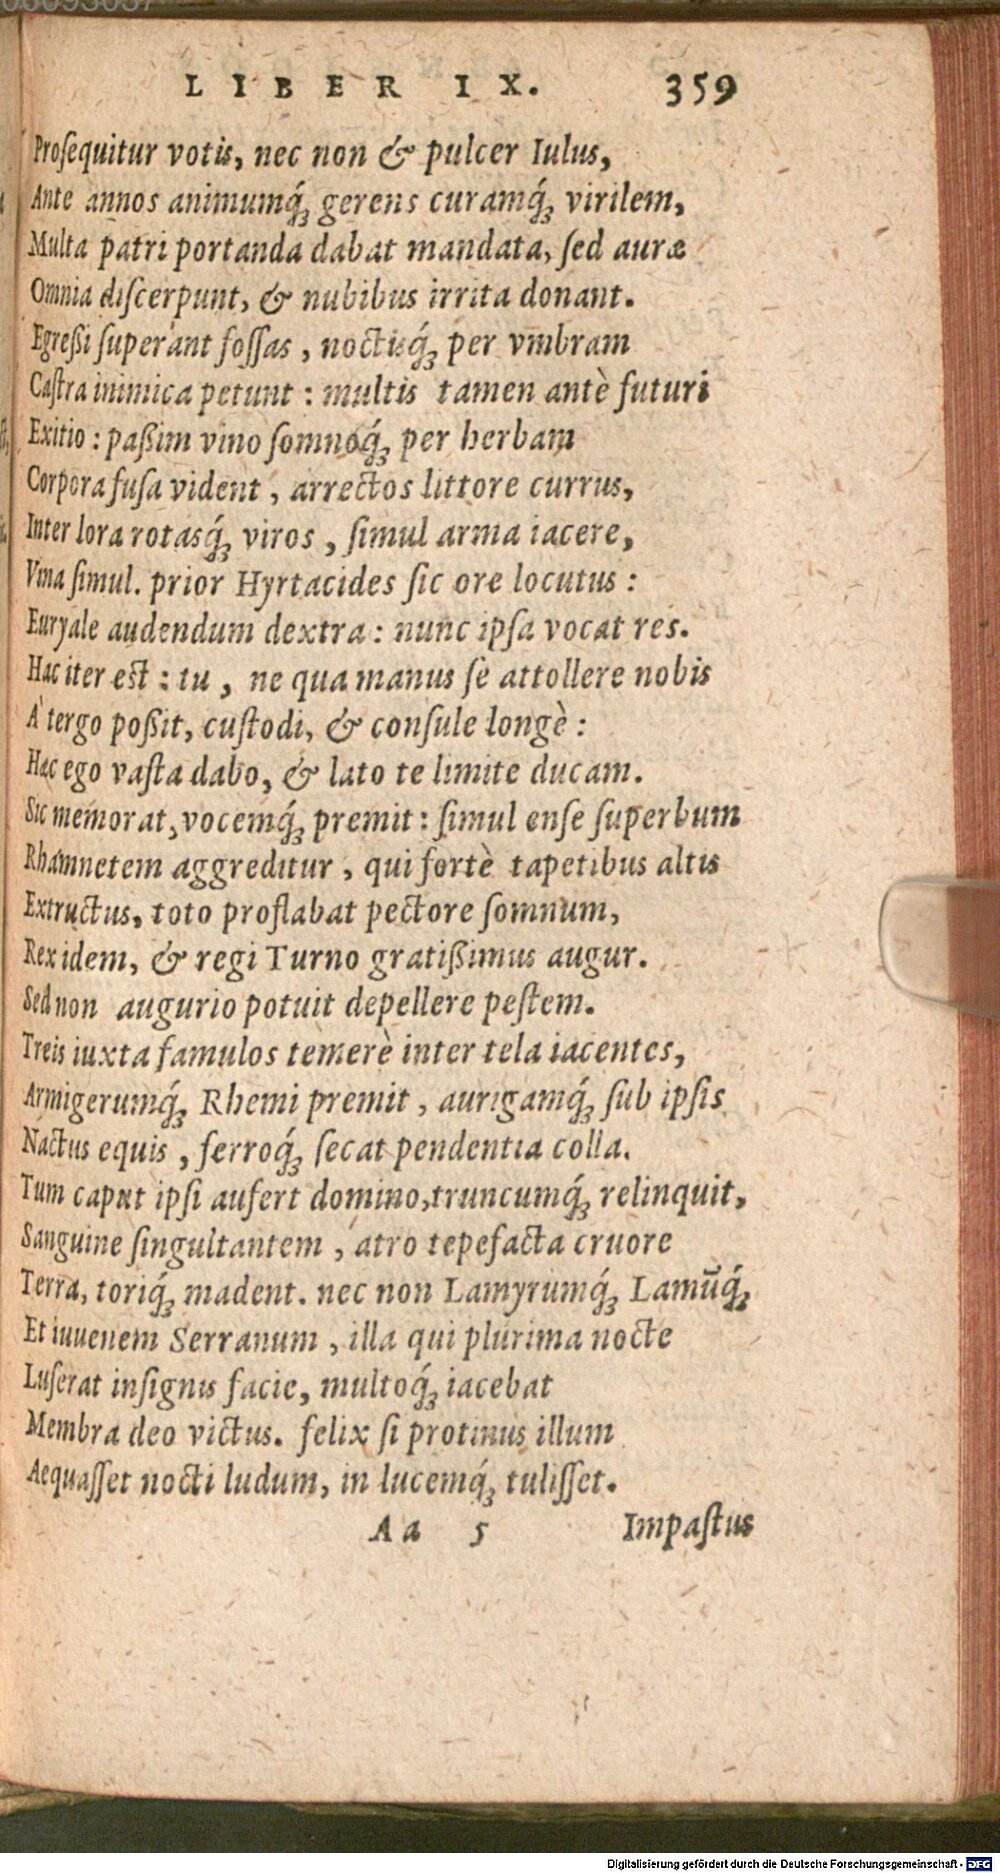 LIBER IX. 359
Proſequitur votis, nec non & pulcer Iulus,
Ante annos animumq́ꝫ gerens curamq́ꝫ virilem,
Multa patri portanda dabat mandata, ſed auræ
Omnia diſcerpunt, & nubibus irrita donant.
Egreßi ſuperant foſſas, noctisq́ꝫ per vmbram
Caſtra inimica petunt: multis tamen antè futuri
Exitio: paßim vino ſomnoq́ꝫ per herbam
Corpora fuſa vident, arrectos littore currus,
Inter lora rotasq́ꝫ viros, ſimul arma iacere,
Vina ſimul. prior Hyrtacides ſic ore locutus:
Euryale audendum dextra: nunc ipſa vocat res.
Hac iter est: tu, ne qua manus ſe attollere nobis
A' tergo poßit, cuſtodi, & conſule longè:
Hac ego vaſta dabo, & lato te limite ducam.
Sic memorat, vocemq́ꝫ premit: ſimul enſe ſuperbum
Rhamnetem aggreditur, qui fortè tapetibus altis
Extructus, toto proflabat pectore ſomnum,
Rex idem, & regi Turno gratißimus augur.
Sed non augurio potuit depellere peſtem.
Treis iuxta famulos temerè inter tela iacentes,
Armigerumq́ꝫ Rhemi premit, aurigamq́ꝫ ſub ipſis
Nactus equis, ferroq́ꝫ ſecat pendentia colla.
Tum caput ipſi aufert domino, truncumq́ꝫ relinquit,
Sanguine ſingultantem, atro tepefacta cruore
Terra, toriq́ꝫ madent. nec non Lamyrumq́ꝫ Lamūq́ꝫ
Et iuuenem Serranum, illa qui plurima nocte
Luſerat inſignis facie, multoq́ꝫ iacebat
Membra deo victus. felix ſi protinus illum
Aequaſſet nocti ludum, in lucemq́ꝫ tuliſſet.
Aa 5 Impaſtus
Digitalisierung gefördert durch die Deutsche Forschungsgemeinschaft - DFG